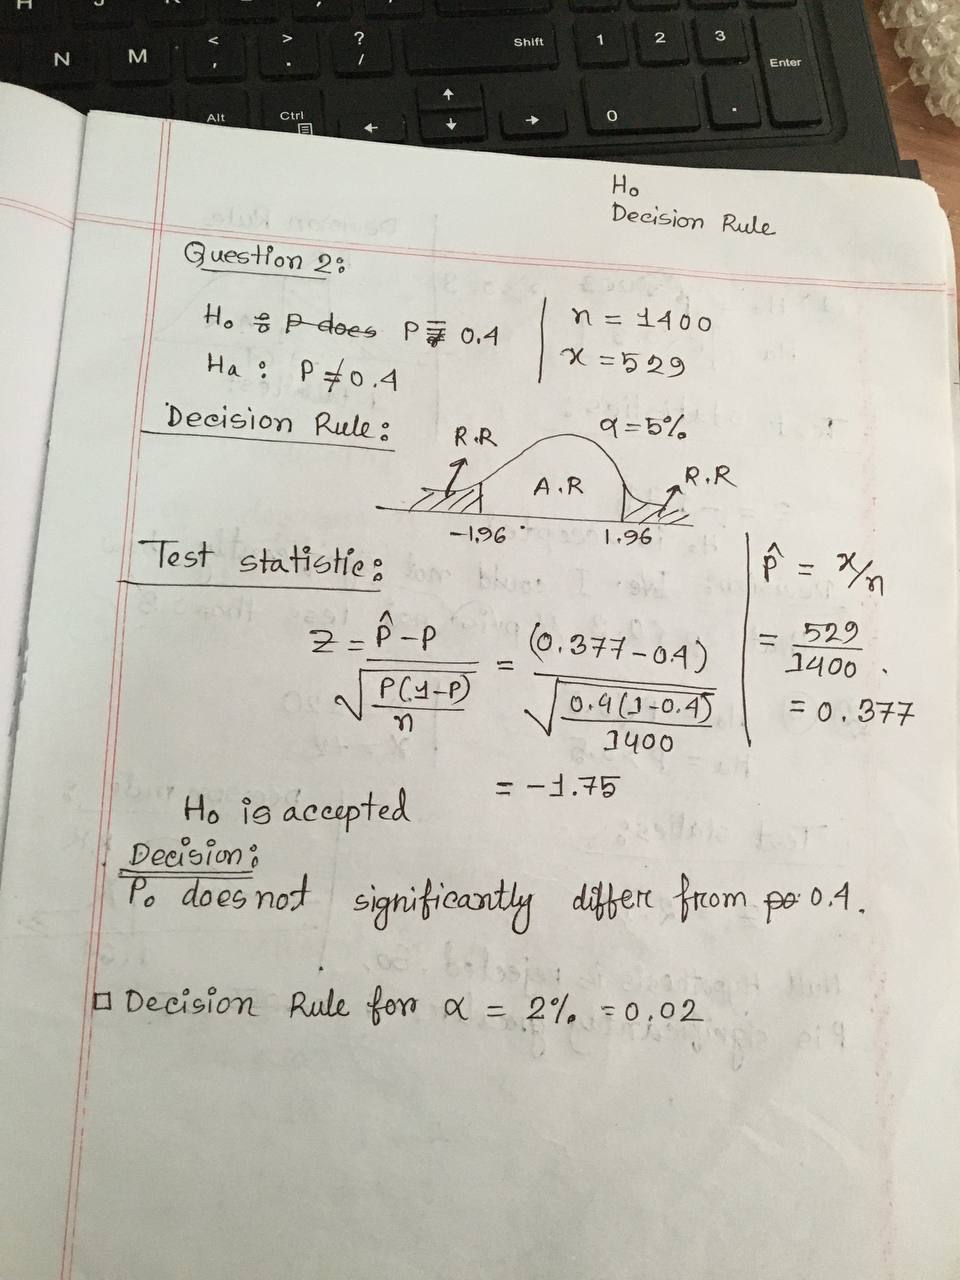 N M < , > . ? / Shift 1 2 3 Enter
Alt Ctrl ← ↑ ↓ → 0 .
H₀
Decision Rule
Question 2:
H₀ : P does P = 0.4
Ha : P ≠ 0.4
n = 1400
x = 529
Decision Rule:
α = 5%
R.R
A.R
R.R
-1.96
1.96
Test statistic:
Z = p̂ - P / √(P(1-P)/n) = (0.377 - 0.4) / √(0.4(1-0.4)/1400)
= -1.75
p̂ = x/n
= 529/1400
= 0.377
H₀ is accepted
Decision:
P₀ does not significantly differ from po 0.4.
□ Decision Rule for α = 2% = 0.02